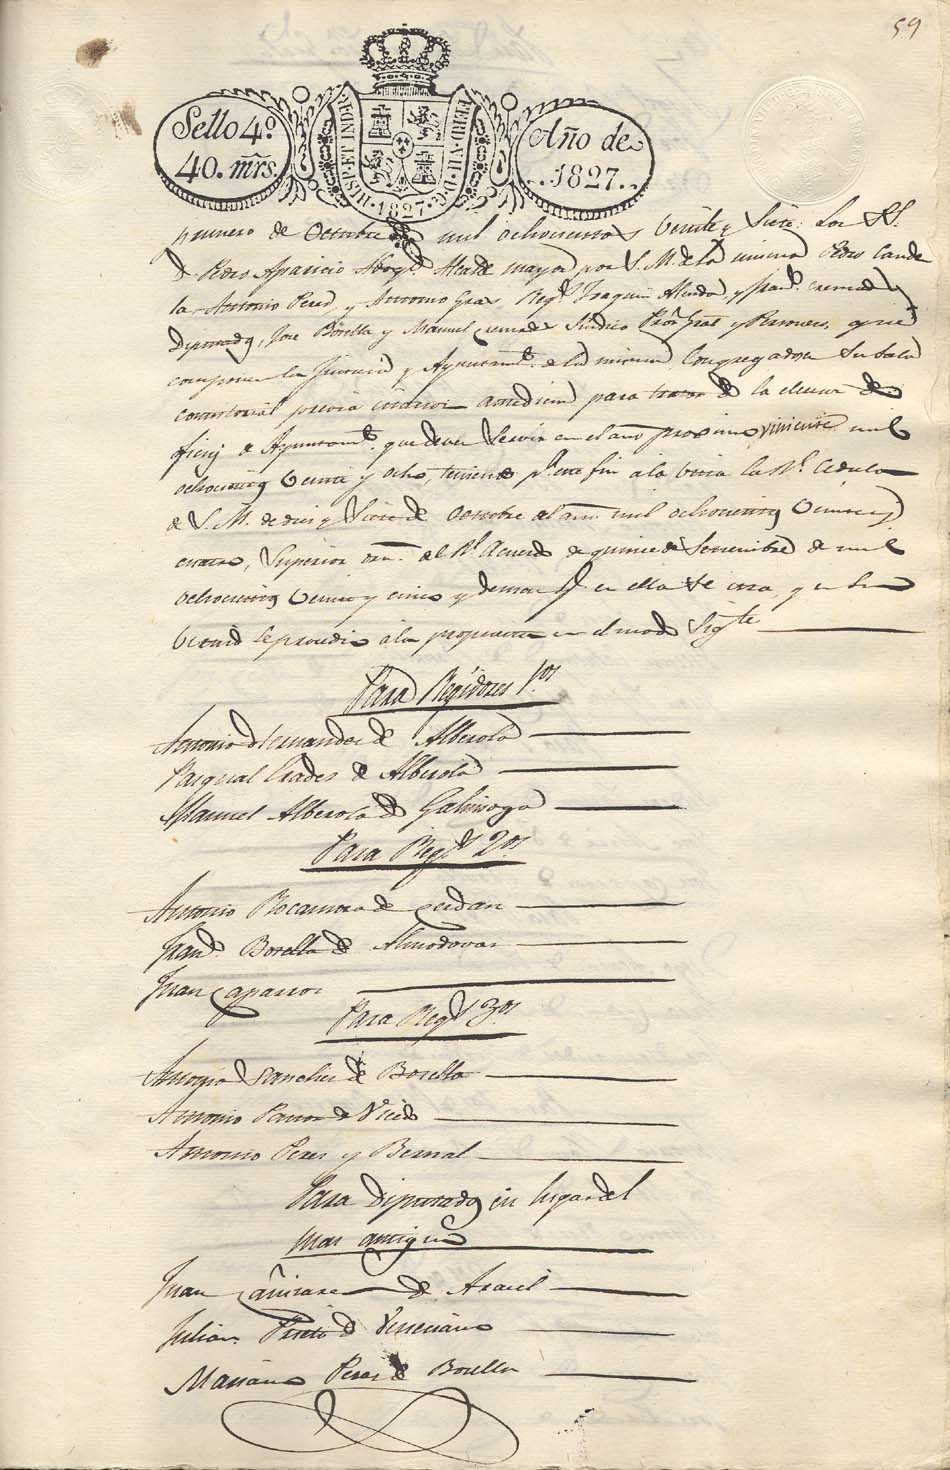 59
Sello 4º
40. mrs.
HISP. ET IND. R.
1827
FERD. VII. D. G.
Año de
1827.
primero de Octubre de mil ochocientos Veinte y Siete: Los SS.
D. Pedro Aparicio Abogº. Alcalde mayor por S. M. de la misma Pedro Cande
la Antonio Peres, y Antonio Gras Regs. Joaquin y Franº.
Diputados, Jose Botella y Manuel Sindico Proº. Gral y Personero, que
componen la Justicia y Ayuntamº. de la misma Congregados en su Sala
consistorial previa citacion para tratar de la eleccion de
ficios de Ayuntamº. que deven Servir en el año proximo viniente mil
ochocientos Veinte y ocho, teniendo pª. este fin a la vista la Rl. Cedula
de S. M. de diez y Siete de Octubre del año mil ochocientos Veinte y
cuatro, Superior orn. del Rl. Acuerdo de quince de Setiembre de mil
ochocientos Veinte y cinco y demas qe. en ella se cita, y en su
Virtud se procedio a la propuesta en el modo Sigte
Para Regidores 1ºs.
Antonio Hernandes de Alberola
Pasqual Prades de Alberola
Manuel Alberola de Galinsoga
Para Regs. 2ºs.
Antonio Rocamora de Cerdan
Franº. Botella de Almodovar
Juan Caparros
Para Regs. 3ºs.
Antonio Sanches de Botella
Antonio de
Antonio Peres y Bernal
Para Diputados en lugar del
mas antiguo
Juan de Araciel
Julian de
Mariano Peres de Botella